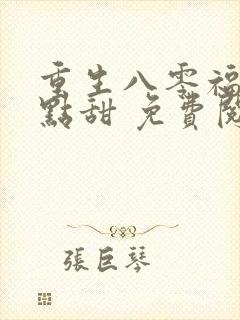 重生八零福
點甜 免費閱
張巨琴